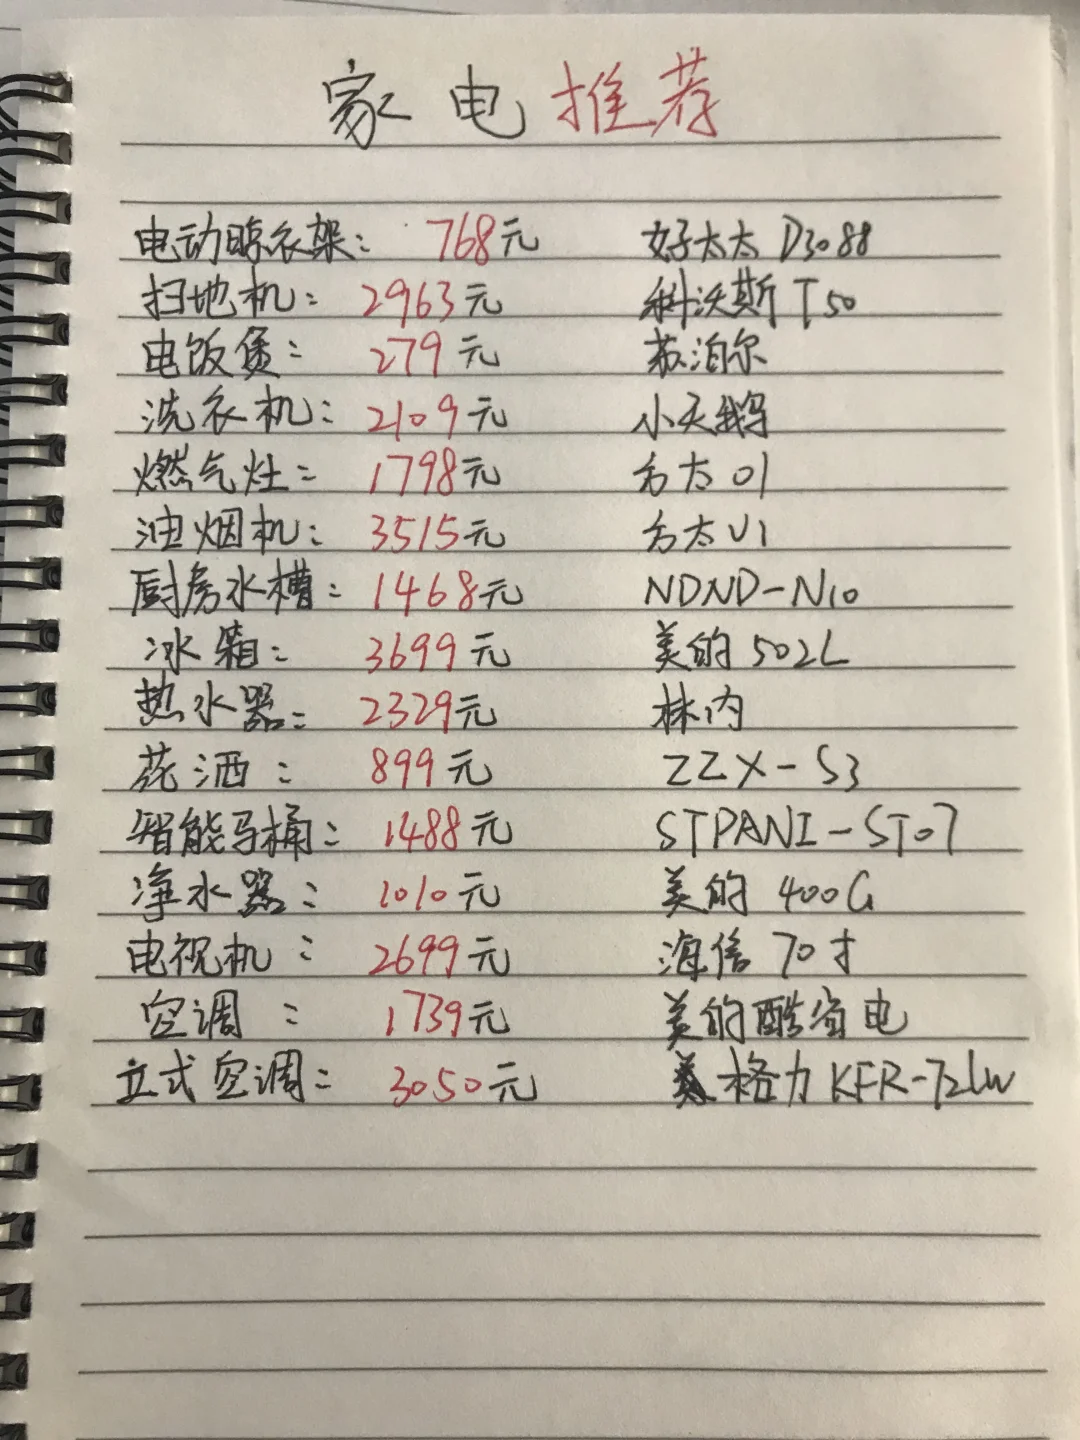 家电推荐
电动晾衣架: 768元 好太太 D3088
扫地机: 2963元 科沃斯 T50
电饭煲: 279元 苏泊尔
洗衣机: 2109元 小天鹅
燃气灶: 1798元 方太 01
油烟机: 3515元 方太 V1
厨房水槽: 1468元 NDND-N10
冰箱: 3699元 美的 502L
热水器: 2329元 林内
花洒: 899元 ZZX-S3
智能马桶: 1488元 STPANI-ST07
净水器: 1010元 美的 400G
电视机: 2699元 海信 70寸
空调: 1739元 美的酷省电
立式空调: 3050元 格力 KFR-72LW